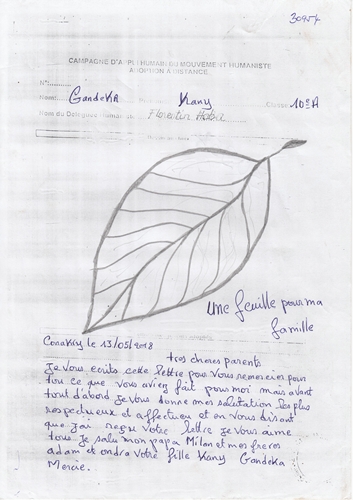 30954
CAMPAGNE D'APPUI HUMAIN DU MOUVEMENT HUMANISTE
ADOPTION A DISTANCE
N°:
Nom: GandeKA Kany Classe 10eA
Nom du Délégué Humain Florentin
une feuille pour ma
famille
ConaKry le 13/05/2018
tres cheres parents
Je vous ecrits cette lettre pour vous remercier pour
tou ce que vous avien fait pour moi mais avant
tout d'abord Je vous donne mes salutation les plus
respectueux et affectueu et en vous disant
que j'ai reçue votre lettre je vous aime
tous je salu mon papa Milan et mes freres
adam et ondra votre fille Kany Gandeka
Mercie.